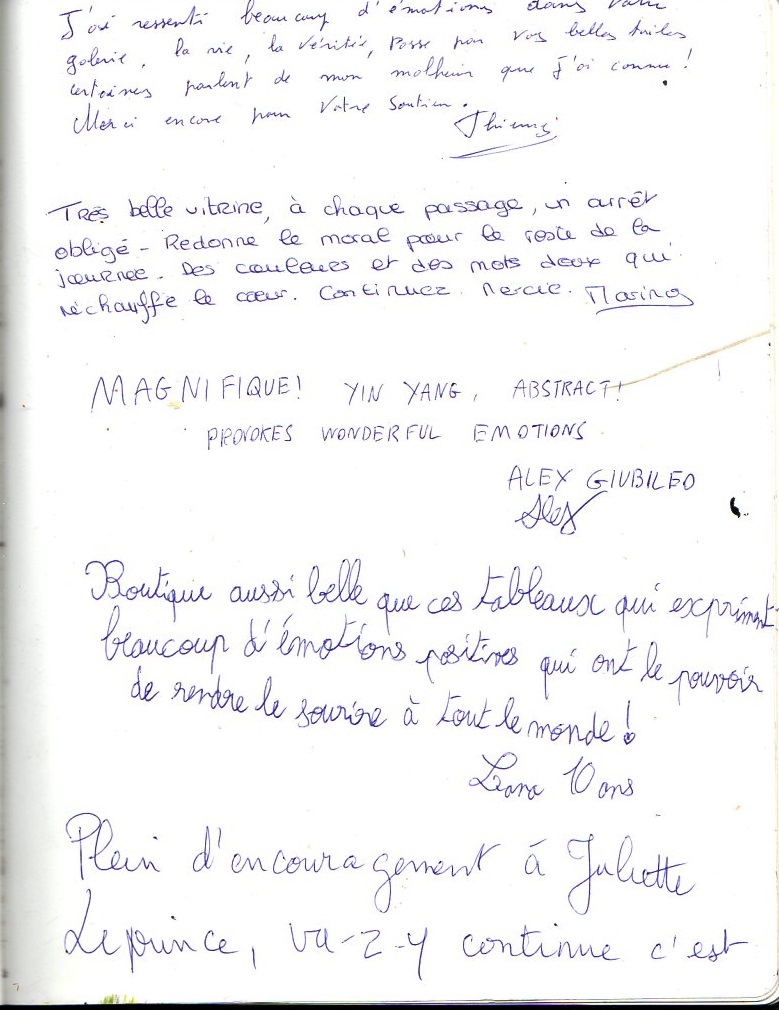 J'ai ressenti beaucoup d'émotions dans votre
galerie. la vie, la vérité, Passe par vos belles toiles
certaines parlent de mon malheur que j'ai connu !
Merci encore pour Votre Soutien.
Thierry
Très belle vitrine, à chaque passage, un arrêt
obligé - Redonne le moral pour le reste de la
journée. Des couleurs et des mots doux qui
réchauffe le cœur. Continuez. Mercie. Marina
MAGNIFIQUE! YIN YANG, ABSTRACT!
PROVOKES WONDERFUL EMOTIONS
ALEX GIUBILEO
Alex
Boutique aussi belle que ces tableaux qui expriment
beaucoup d'émotions positives qui ont le pouvoir
de rendre le sourire à tout le monde !
10 ans
Plein d'encouragement à Juliette
Leprince, va-z-y continue c'est